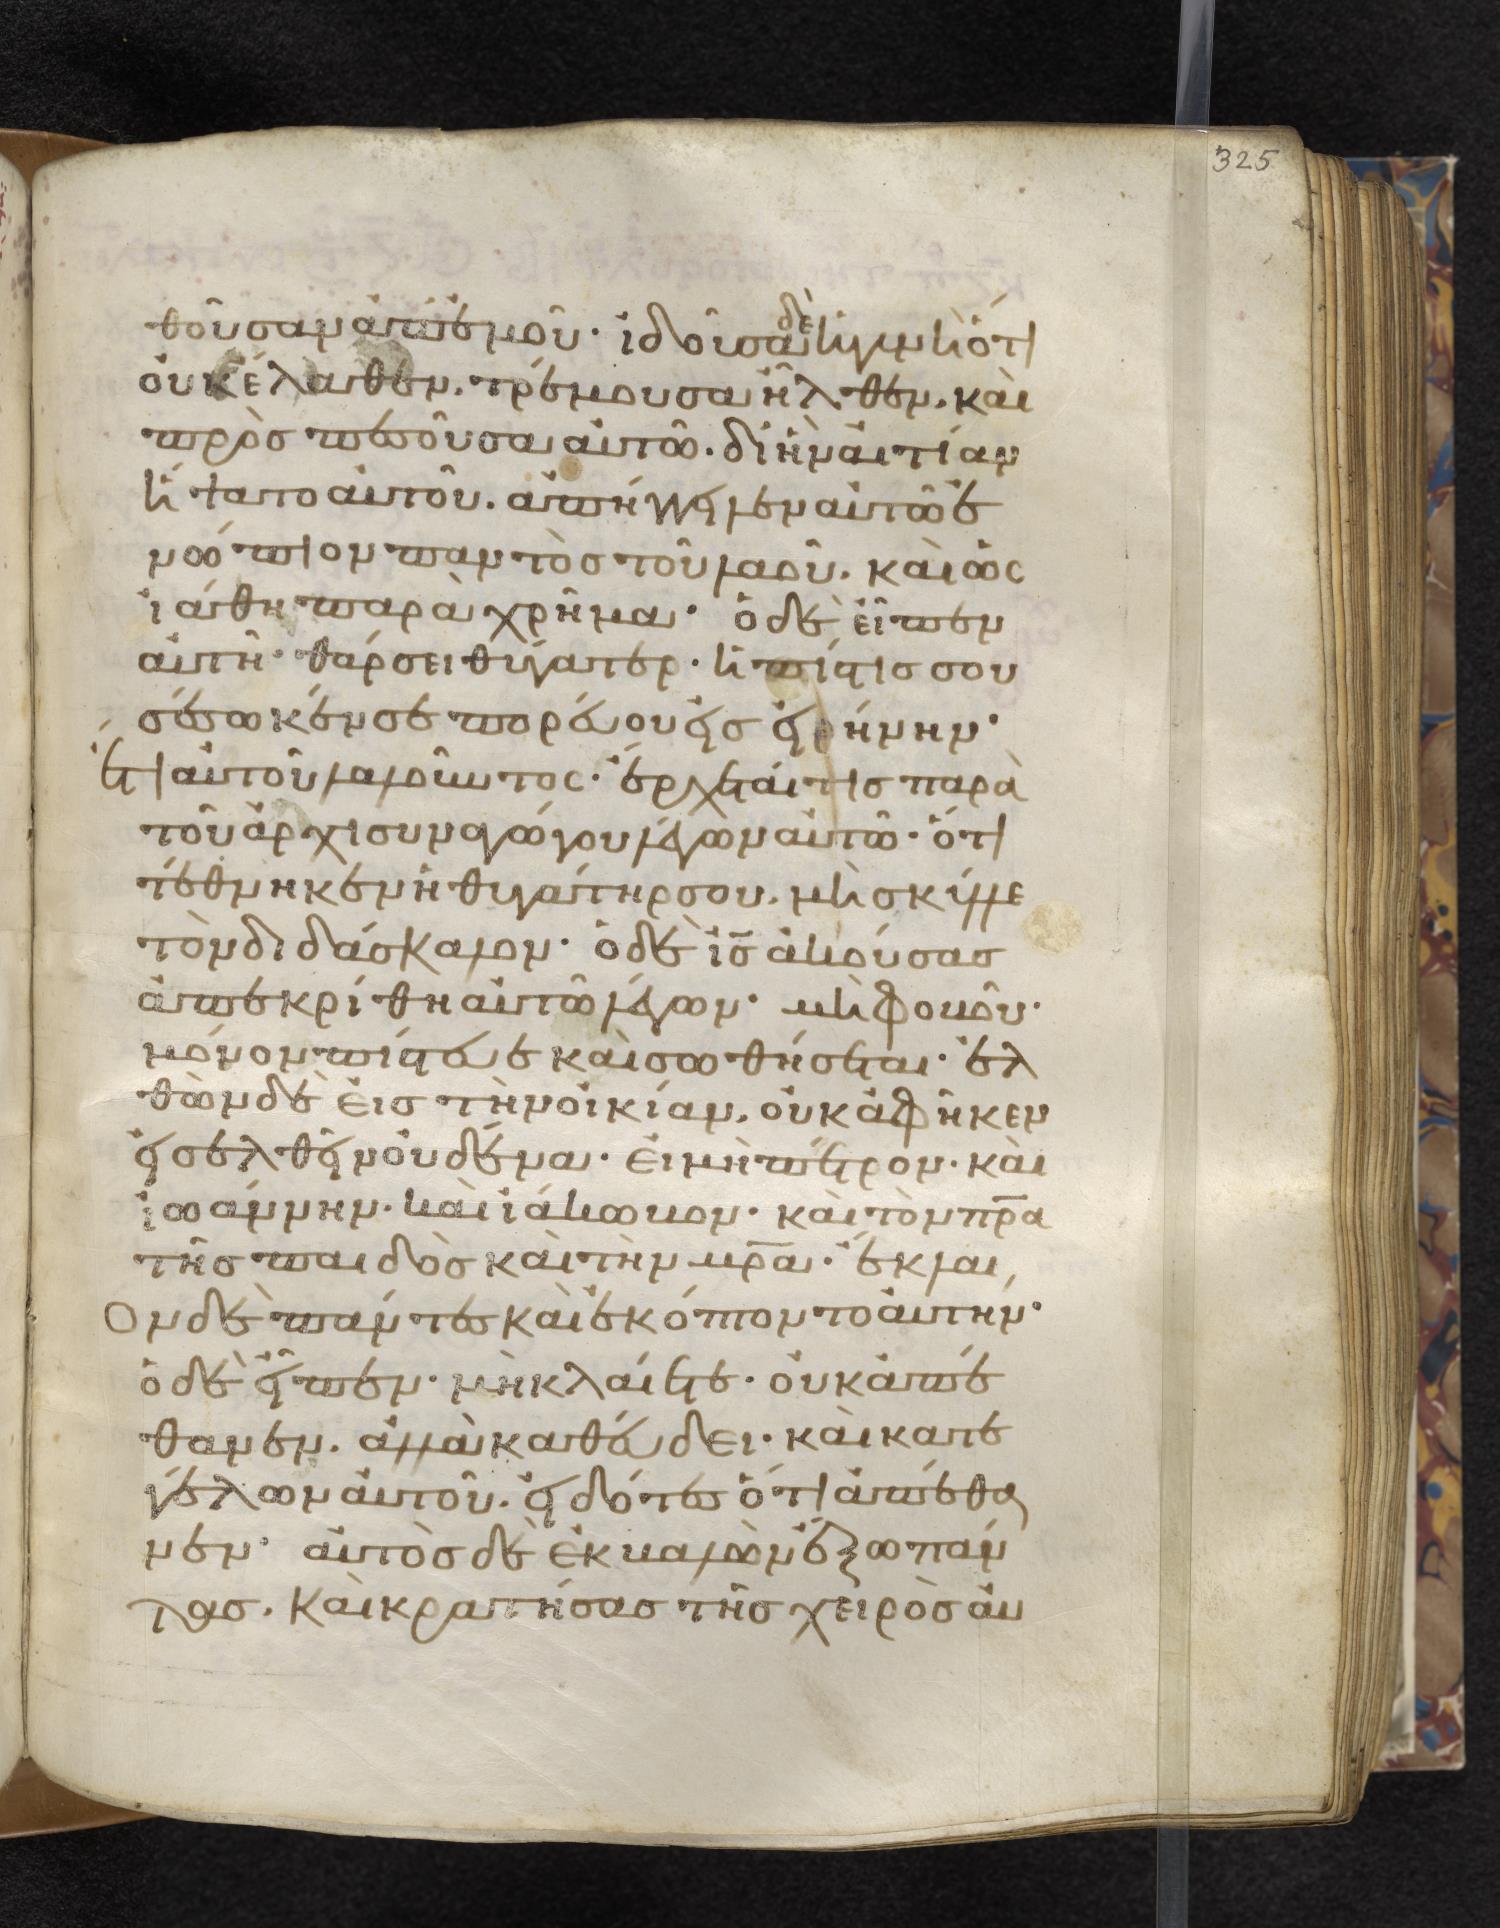 325
θοῦσαν ἀπ' ἐμοῦ· ἰδοῦσα δὲ ἡ γυνὴ ὅτι
οὐκ ἔλαθεν, τρέμουσα ἦλθεν, καὶ
προσπεσοῦσα αὐτῶ· δι' ἣν αἰτίαν
ἥψατο αὐτοῦ, ἀπήγγειλεν αὐτῶ ἐ
νώπιον παντὸς τοῦ λαοῦ, καὶ ὡς
ἰάθη παρὰ χρῆμα· ὁ δὲ εἶπεν
αὐτῆ· θάρσει θύγατερ· ἡ πίστις σου
σέσωκέν σε πορεύου εἰς εἰρήνην·
ἔτι αὐτοῦ λαλοῦντος· ἔρχεταί τις παρὰ
τοῦ ἀρχισυναγώγου λέγων αὐτῶ· ὅτι
τέθνηκεν ἡ θυγάτηρ σου, μὴ σκύλλε
τὸν διδάσκαλον· ὁ δὲ ἰς ἀκούσας
ἀπεκρίθη αὐτῶ λέγων· μὴ φοβοῦ·
μόνον πίστευε καὶ σωθήσεται· ἐλ
θὼν δὲ εἰς τὴν οἰκίαν, οὐκ ἀφῆκεν
εἰσελθεῖν οὐδένα· εἰ μὴ πέτρον· καὶ
ἰωάννην· καὶ ἰάκωβον· καὶ τὸν πρα
τῆς παιδὸς καὶ τὴν μρα· ἔκλαι
ον δὲ πάντες καὶ ἐκόπτοντο αὐτήν·
ὁ δὲ εἶπεν· μὴ κλαίετε· οὐκ ἀπέ
θανεν, ἀλλὰ καθεύδει· καὶ κατε
γέλων αὐτοῦ, εἰδότες ὅτι ἀπέθα
νεν· αὐτὸς δὲ ἐκβαλὼν ἔξω πάν
τας, καὶ κρατήσας τῆς χειρὸς αὐ